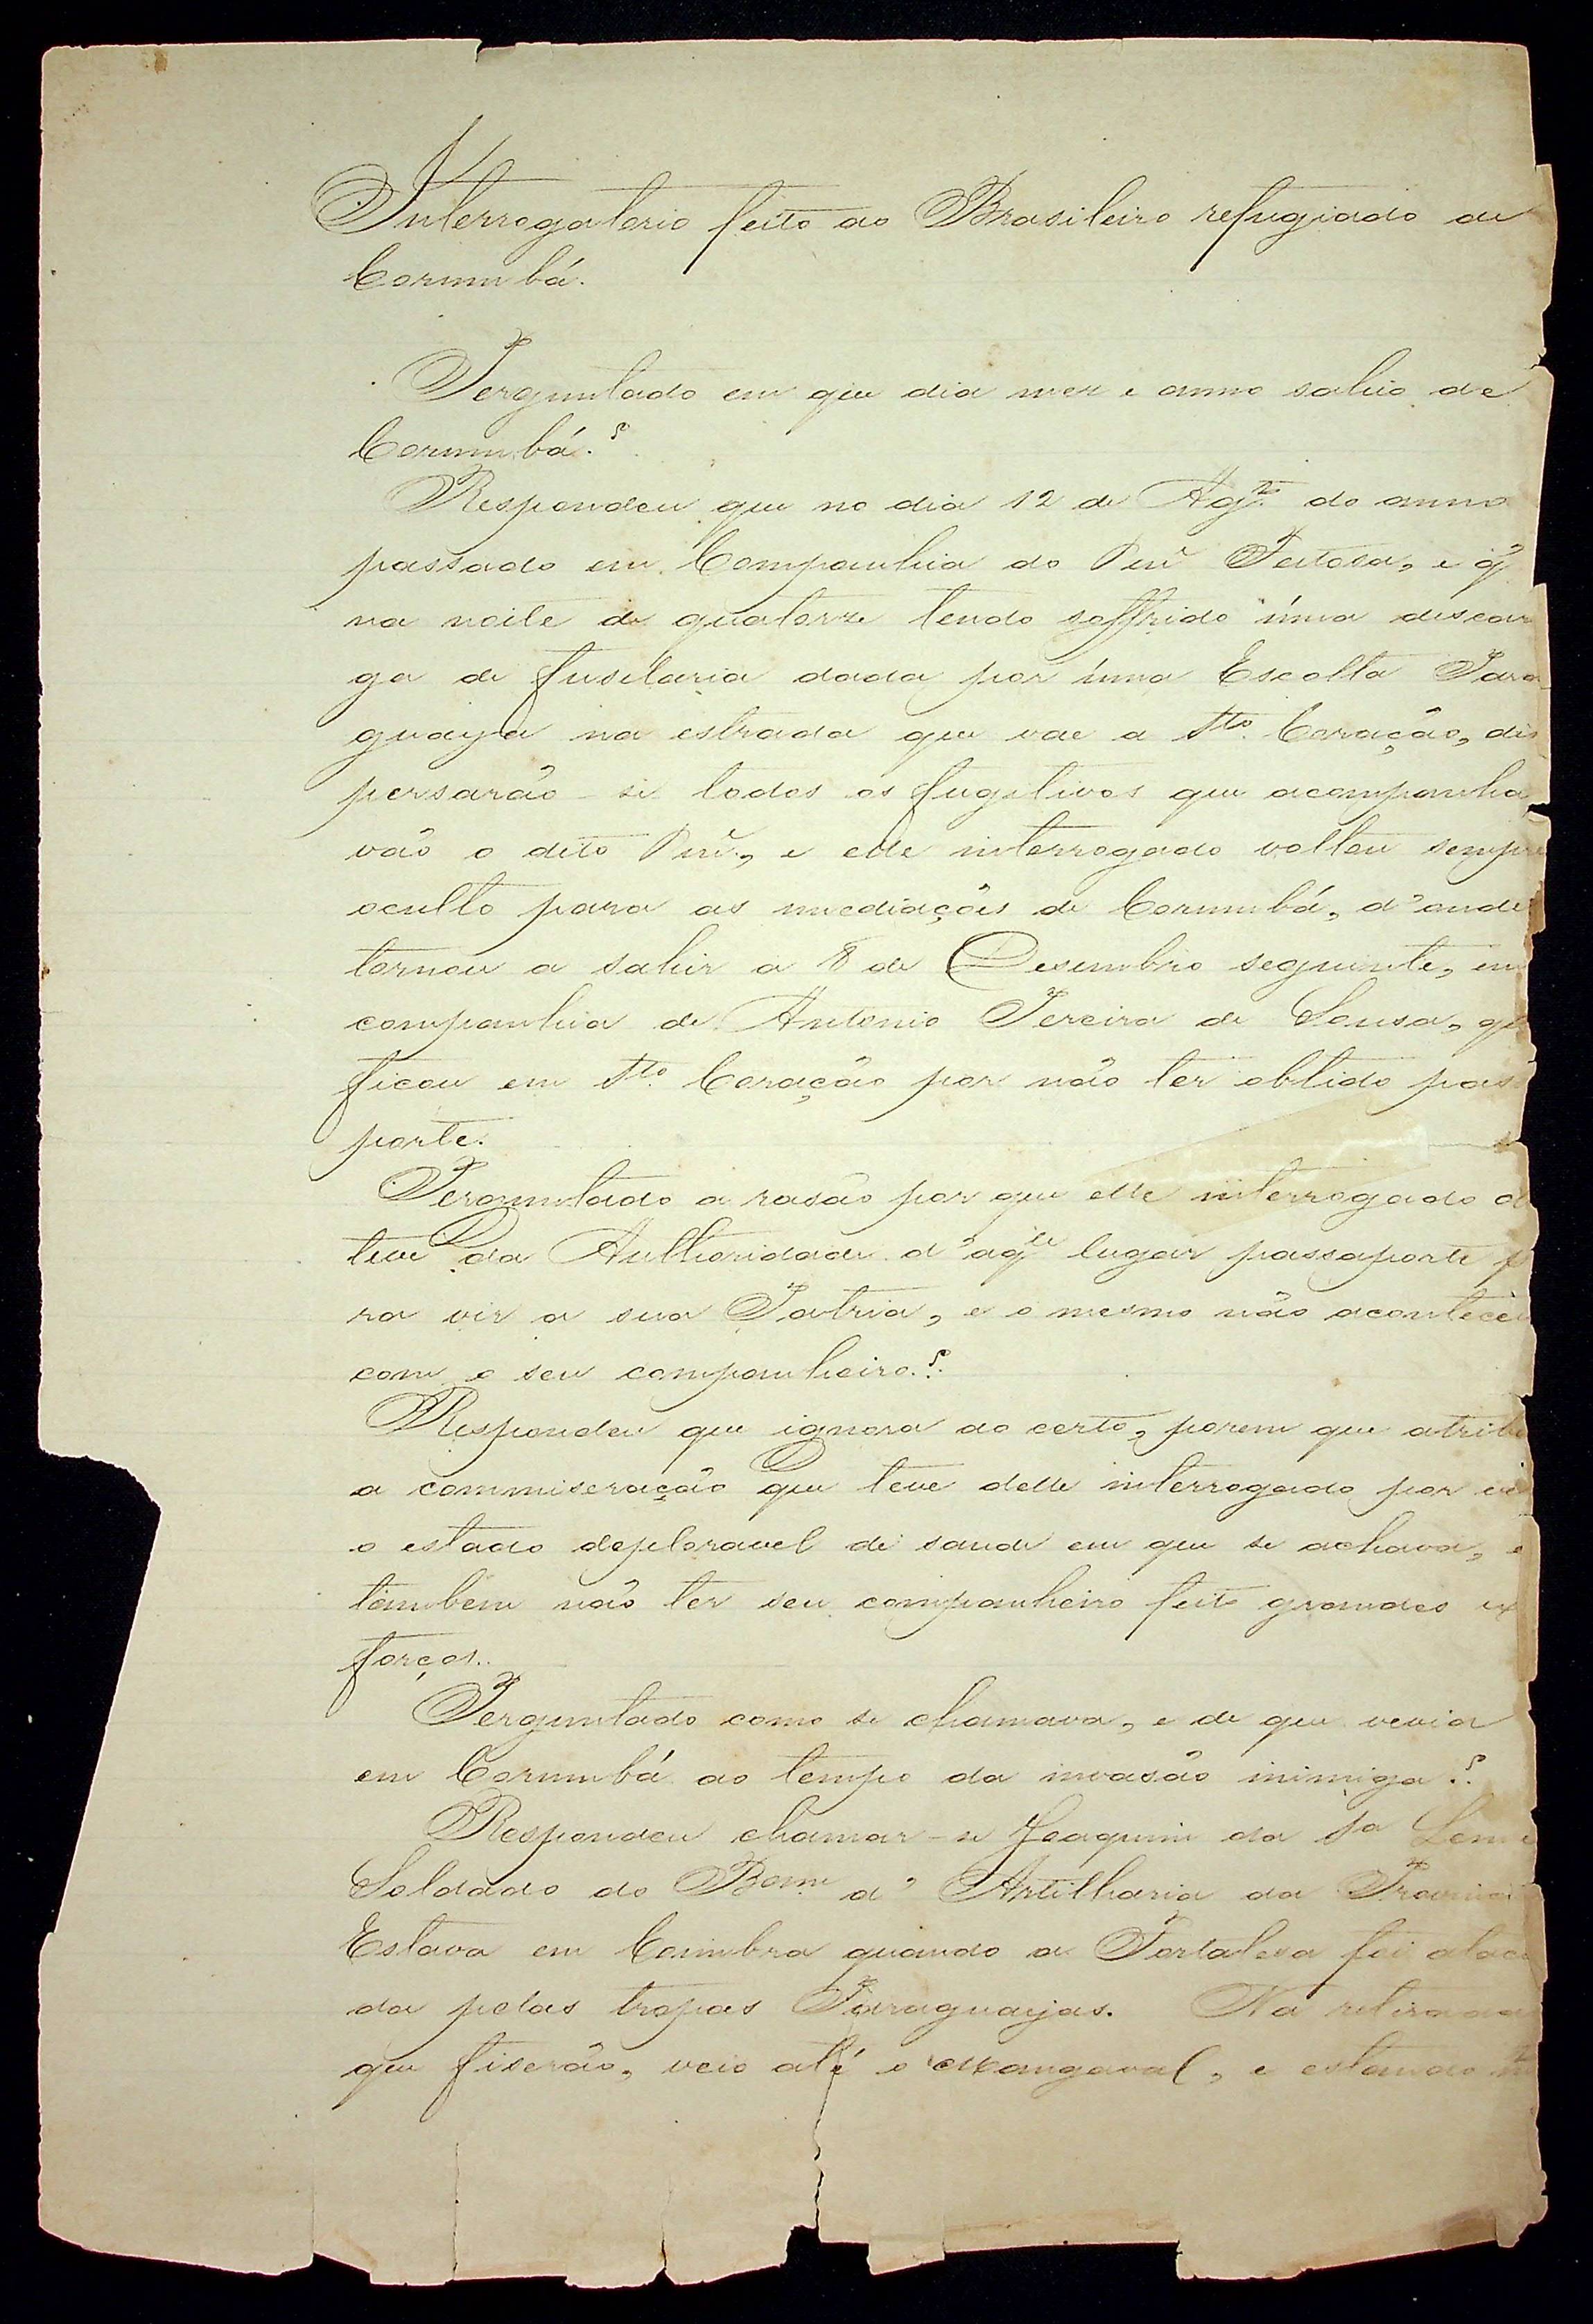 Interrogatorio feito ao Brasileiro refugiado de
Corumbá.
Perguntado em que dia mez e anno sahio de
Corumbá.?
Respondeu que no dia 12 de Agto. do anno
passado em Companhia do Feitosa, e q̃
na noite de quatorze tendo soffrido úma descar
ga de fusilaria dada por úma Escolta Para
guaya na estrada que vae a Sto. Coração, dis
persarão-se todos os fugitivos que acompanha
vão o dito e elle interrogado voltou sempre
occulto para as imediações de Corumbá, d'onde
tornou a sahir a 8 de Desembro seguinte, em
companhia de Antonio Pereira de Sousa, que
ficou em Sto. Coração por não ter obtido pas
porte.
Perguntado a rasão por que elle interrogado ob
teve da Authoridade d'aqle lugar passaporte p
ra vir a sua Patria, e o mesmo não aconteceu
com o seu companheiro.?
Respondeu que ignora ao certo, porem que atribu
a commiseração que teve delle interrogado por ver
o estado deploravel de saude em que se achava, e
tambem não ter seu companheiro feito grandes ex
forços.
Perguntado como se chamava, e de que vevia
em Corumbá ao tempo da invasão inimiga.?
Respondeu chamar-se Joaquim da Sa Leme
Soldado do Bam d'Artilharia da Provincia
Estava em Coimbra quando a Fortalesa foi ataca
da pelas tropas Paraguayas. Na retirada
que fiserão, veio até o Mangaval, e estando